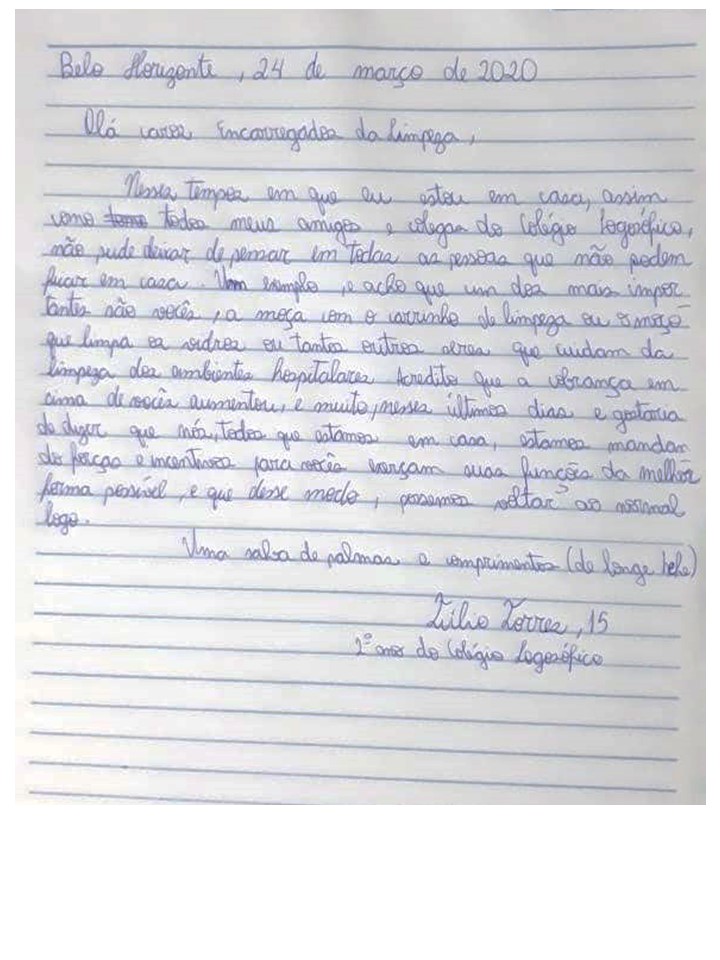 Belo Horizonte, 24 de março de 2020
Olá caros Encarregados da limpeza,
Nesses tempos em que eu estou em casa, assim
como todos meus amigos e colegas do Colégio Logosófico,
não pude deixar de pensar em todas as pessoas que não podem
ficar em casa. Um exemplo, e acho que um dos mais impor
tantes são vocês, a moça com o carrinho de limpeza ou o moço
que limpa os vidros ou tantos outros que cuidam da
limpeza dos ambientes hospitalares. Acredito que a cobrança em
cima de vocês aumentou, e muito, nesses últimos dias e gostaria
de dizer que nós, todos que estamos em casa, estamos mandan
do forças e incentivos para vocês exerçam suas funções da melhor
forma possível, e que desse modo, possamos voltar ao normal
logo.
Uma salva de palmas e comprimentos (de longe hehe)
Júlio Torres, 15
2º ano do Colégio Logosófico